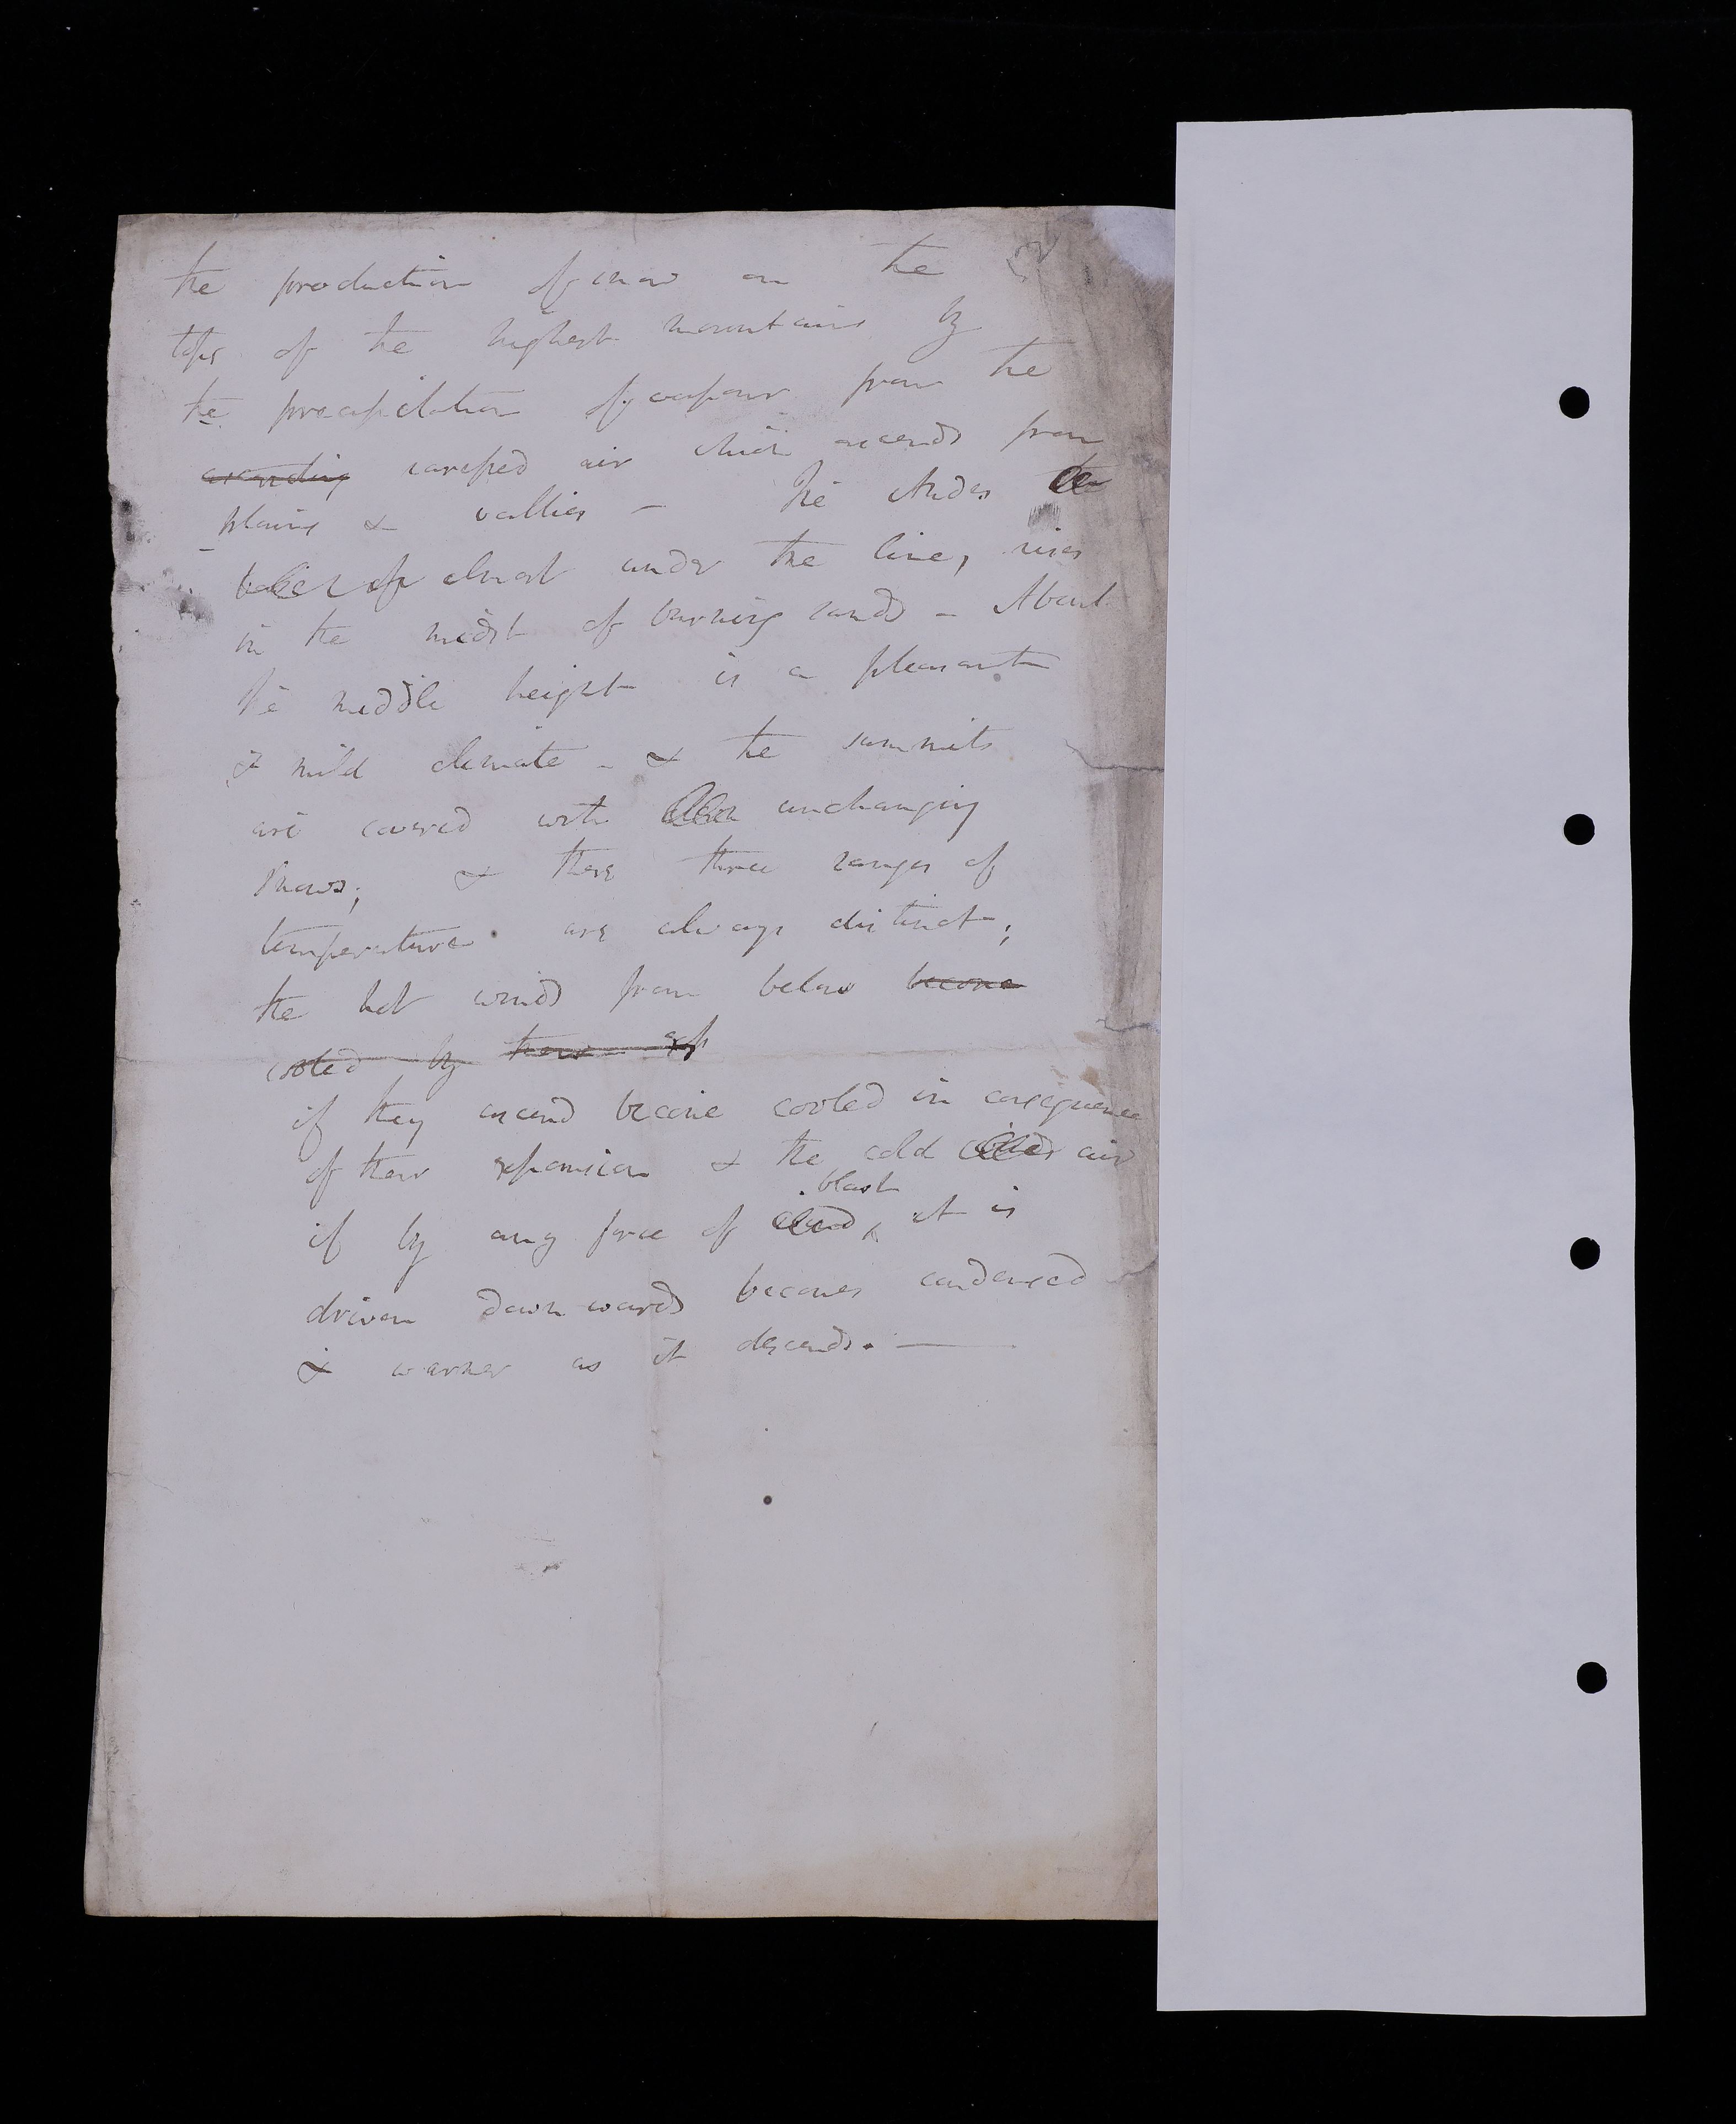 the production of snow on the
tops of the highest mountains by
the precipitation of vapour from the
ascending rarefied air which ascends from
plains & vallies - The Andes
almost under the line, rises
in the midst of burning sands - About
the middle height is a pleasant
& mild climate - & the summits
are covered with unchanging
snows; & these three ranges of
temperature are always distinct;
the hot winds from below become
cooled by their exp
if they ascend become cooled in consequence
of their expansion & the cold air
blast
if by any force of it is
driven downwards becomes condensed
& warmer as it descends. —